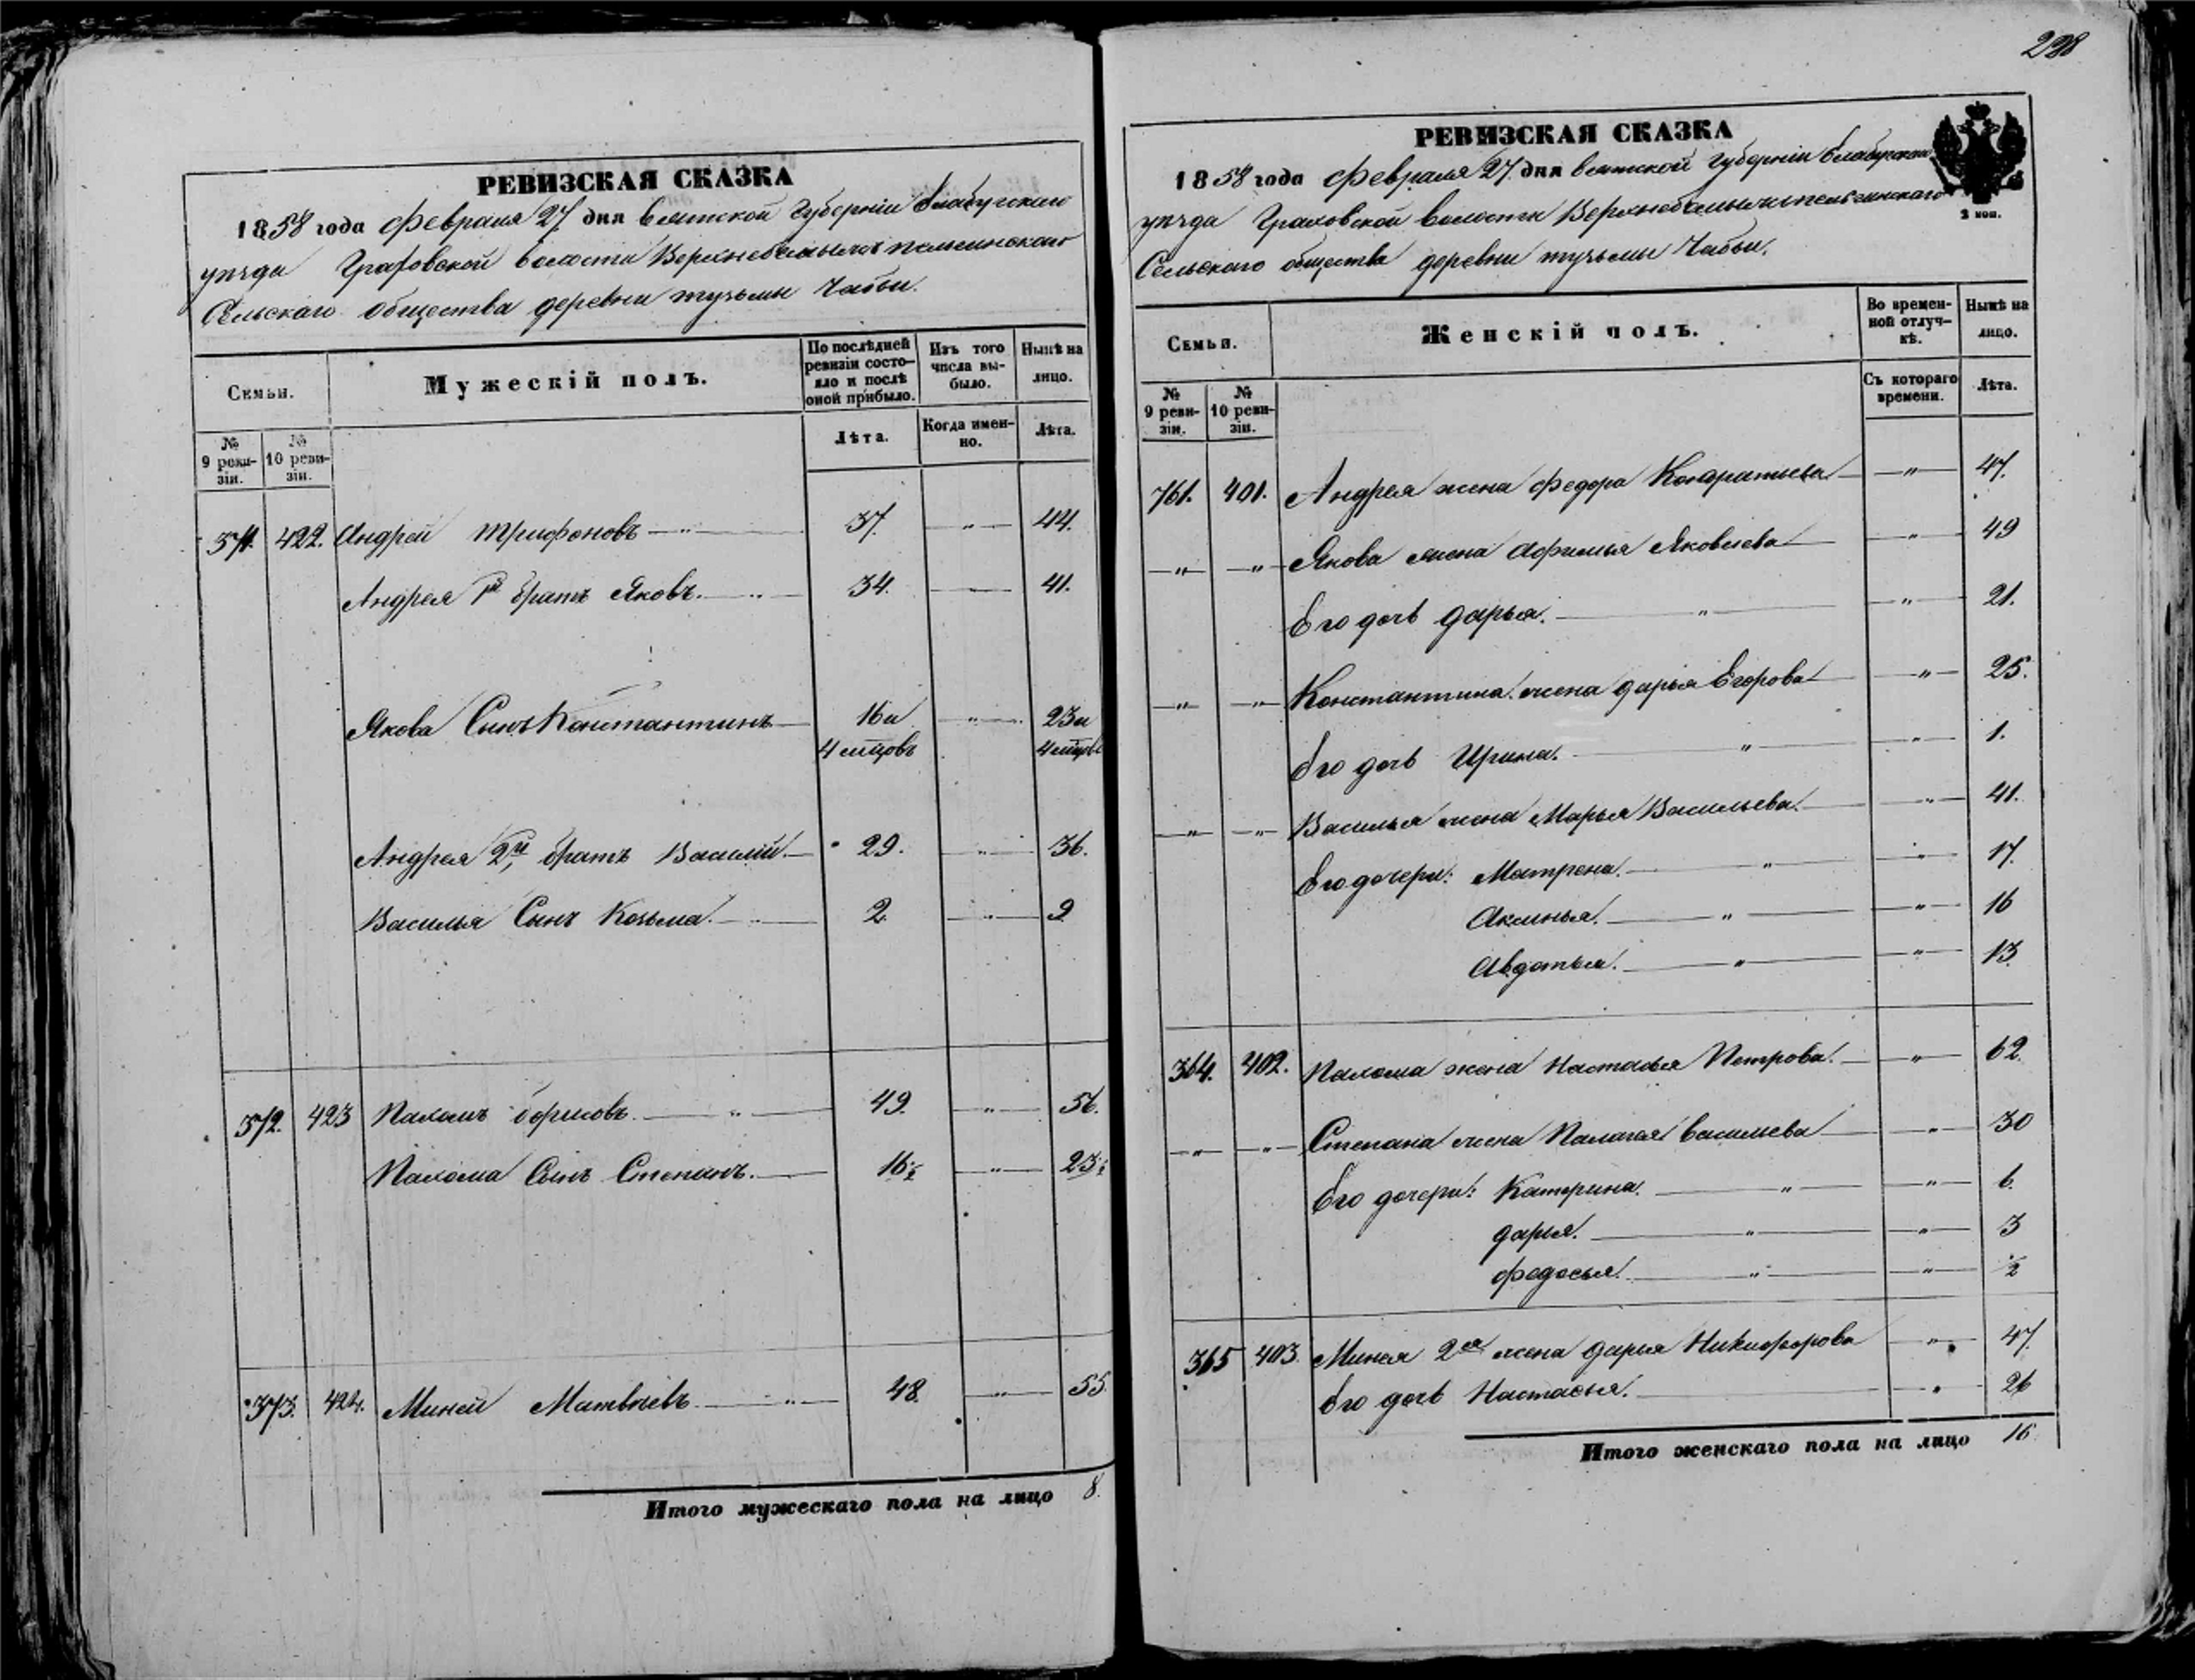 298
РЕВИЗСКАЯ СКАЗКА
1858 года февраля 27 дня Вятской Губерніи Елабугскаго
уѣзда Граховской волости
Сельскаго общества деревни Чабьи.
Семьи.
Мужескій полъ.
По послѣдней ревизіи состояло и послѣ оной прибыло.
Изъ того числа выбыло.
Нынѣ на лицо.
№ 9 ревизіи.
№ 10 ревизіи.
Лѣта.
Когда именно.
Лѣта.
371. 422. Андрей Трифоновъ — " — 37. — " — 44.
Андрея 1й братъ Яковъ. — " — 34. — " — 41.
Якова Сынъ Константинъ — 16 и 4 мцовъ — " — 23 и 4 мцов
Андрея 2й братъ Василій. — 29. — " — 36.
Василья Сынъ Козьма. — " — 2. — " — 9
372. 423 Пахомъ Борисовъ. — " — 49. — " — 56.
Пахома Сынъ Степанъ. — 16½ — " — 23½
373. 424. Миней Матвѣевъ — " — 48. — " — 55.
Итого мужескаго пола на лицо 8.
РЕВИЗСКАЯ СКАЗКА
1858 года февраля 27 дня Вятской Губерніи Елабугскаго
уѣзда Граховской волости
Сельскаго общества деревни Чабьи.
2 коп.
Семьи.
Женскій полъ.
Во временной отлучкѣ.
Нынѣ на лицо.
№ 9 ревизіи.
№ 10 ревизіи.
Съ котораго времени.
Лѣта.
761. 401. Андрея жена Федора Кондратьева — " — 47.
— " — " — Якова жена Афимья Яковлева — " — 49
Его дочь Дарья. — " — " — 21.
— " — " — Константина жена Дарья Егорова — " — 25.
Его дочь Ирина. — " — " — 1.
— " — " — Василья жена Марья Васильева. — " — 41.
Его дочери: Матрена. — " — " — 17.
Аксинья. — " — " — 16
Авдотья. — " — " — 13.
364. 402. Пахома жена Настасья Петрова. — " — 62.
— " — " — Степана жена Палагея Васильева — " — 30
Его дочери: Катерина. — " — " — 6.
Дарья. — " — " — 3
Федосья. — " — " — ½
365 403. Минея 2я жена Дарья Никифорова — " — 47.
Его дочь Настасья. — " — 26
Итого женскаго пола на лицо 16